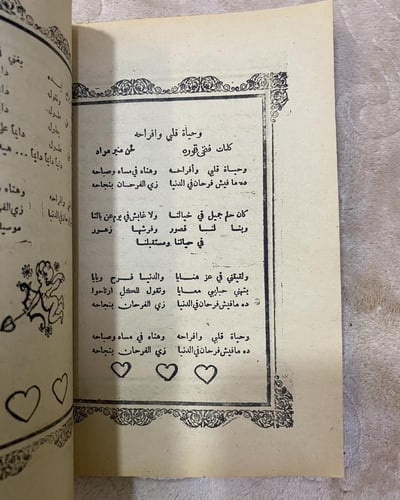 وحياة قلبي وافراحه
كلمات فتحى قوره لحن منير مراد
وحياة قلبي وأفراحه وهناه في مساه وصباحه
ده مافيش فرحان في الدنيا زي الفرحان بنجاحه
كان حلم جميل في خيالنا ولا غابش في يوم عن بالنا
وبنا لنا قصور وفرشها زهور
في حياتنا ومستقبلنا
ولقيتني في عز هنايا والدنيا فرح ويايا
بتهني حبايبي معايا وتقول للكل ارتاحوا
ده مافيش فرحان في الدنيا زي الفرحان بنجاحه
وحياة قلبي وافراحه وهناه في مساه وصباحه
ده مافيش فرحان في الدنيا زي الفرحان بنجاحه
يغني
وهناه
زي الفر